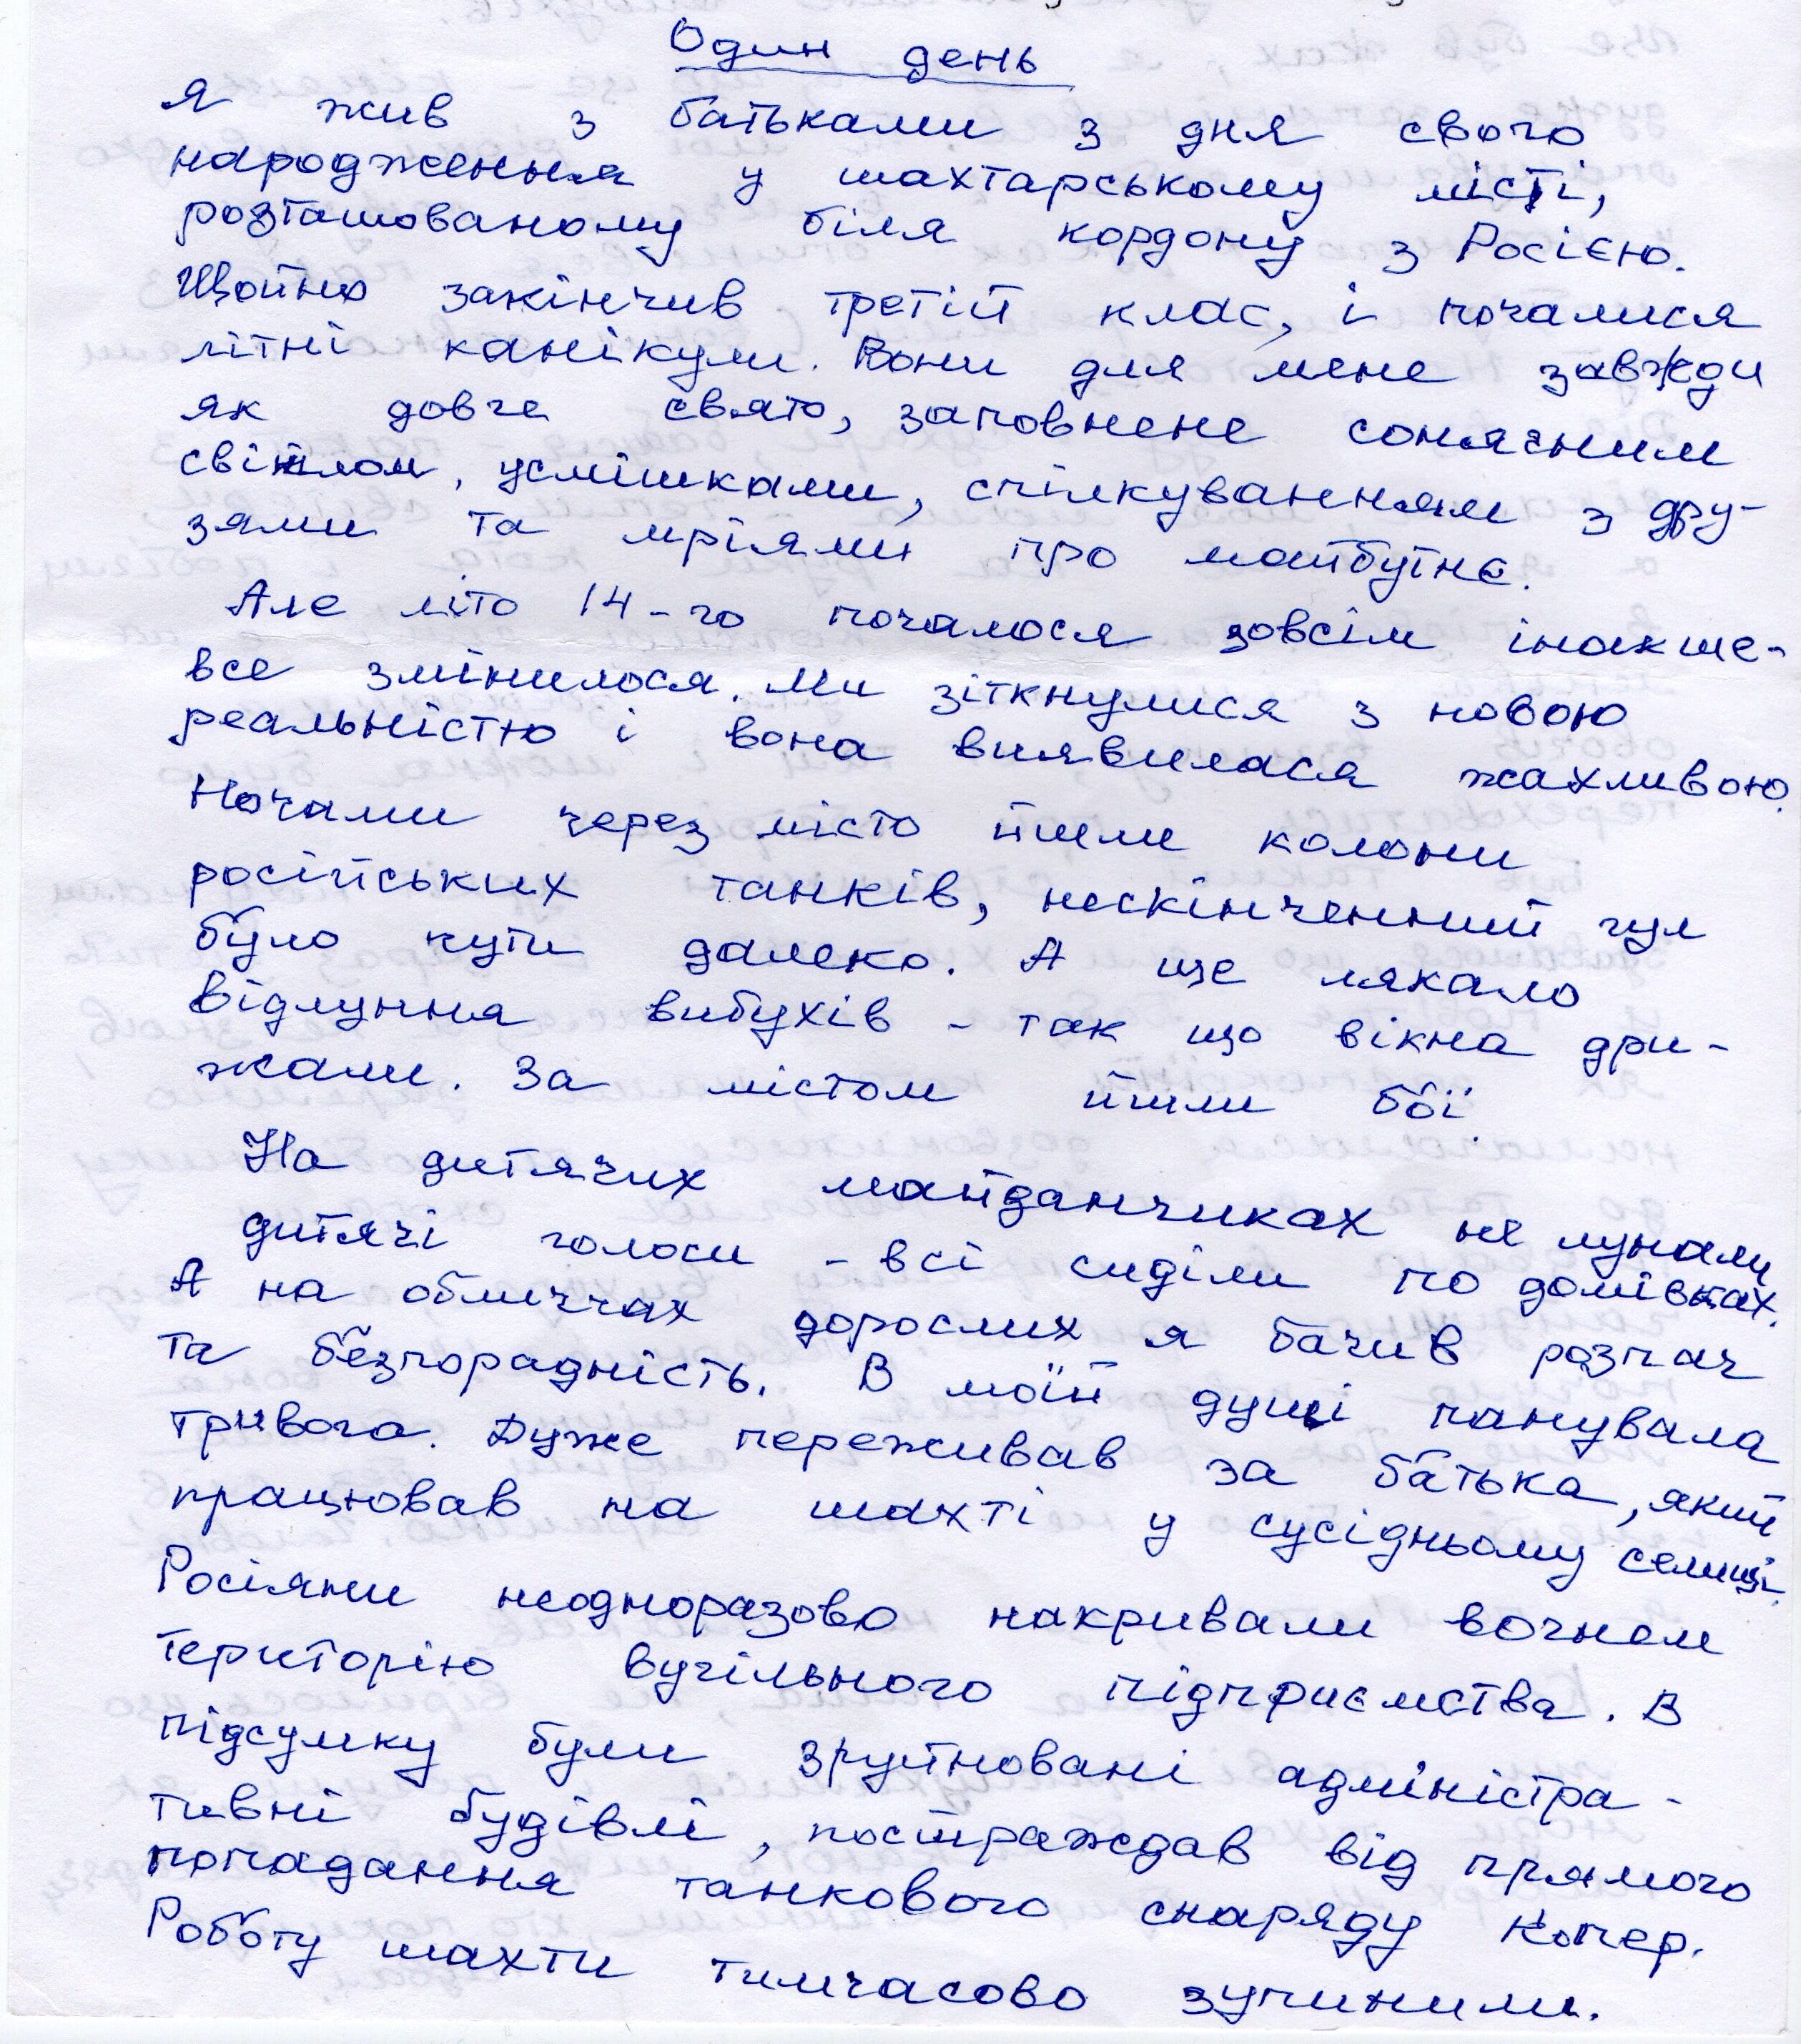 Один день
Я жив з батьками з дня свого
народження у шахтарському місті,
розташованому біля кордону з Росією.
Щойно закінчив третій клас, і почалися
літні канікули. Вони для мене завжди
як довге свято, заповнене сонячним
світлом, усмішками, спілкуванням з дру-
зями та мріями про майбутнє.
Але літо 14-го почалося зовсім інакше-
все змінилося. Ми зіткнулися з новою
реальністю і вона виявилася жахливою.
Ночами через місто йшли колони
російських танків, нескінченний гул
було чути далеко. А ще лякало
відлуння вибухів - так що вікна дри-
жали. За містом йшли бої.
На дитячих майданчиках не лунали
дитячі голоси - всі сиділи по домівках.
А на обличчах дорослих я бачив розпач
та безпорадність. В моїй душі панувала
тривога. Дуже переживав за батька, який
працював на шахті у сусідньому селищі.
Росіяни неодноразово накривали вогнем
територію вугільного підприємства. В
підсумку були зруйновані адміністра-
тивні будівлі, постраждав від прямого
попадання танкового снаряду копер.
Роботу шахти тимчасово зупинили.